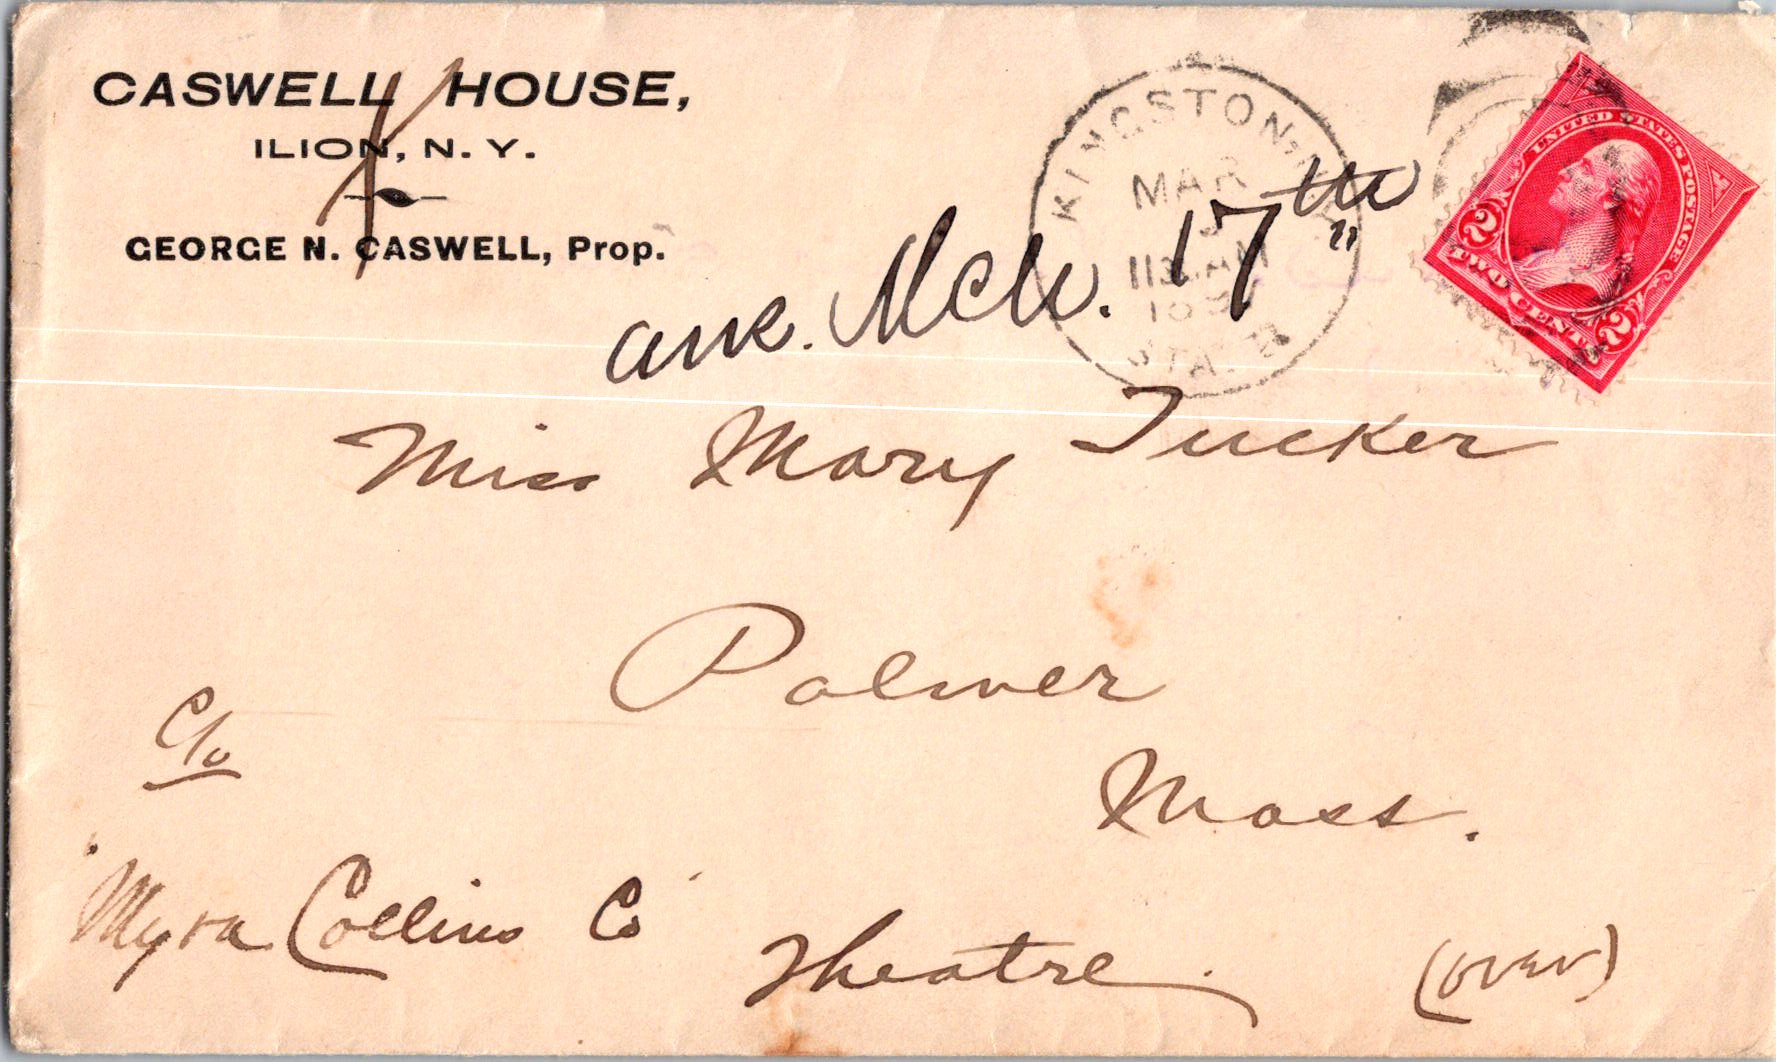 CASWELL HOUSE,
ILION, N. Y.
GEORGE N. CASWELL, Prop.
KINGSTON, N.Y.
MAR
1130 AM
189
STA. R
UNITED STATES POSTAGE
2 2
TWO CENTS
ans. Mch. 17th
Miss Mary Tucker
Palmer
Mass.
C/o
"Myra Collins Co"
Theatre.
(over)